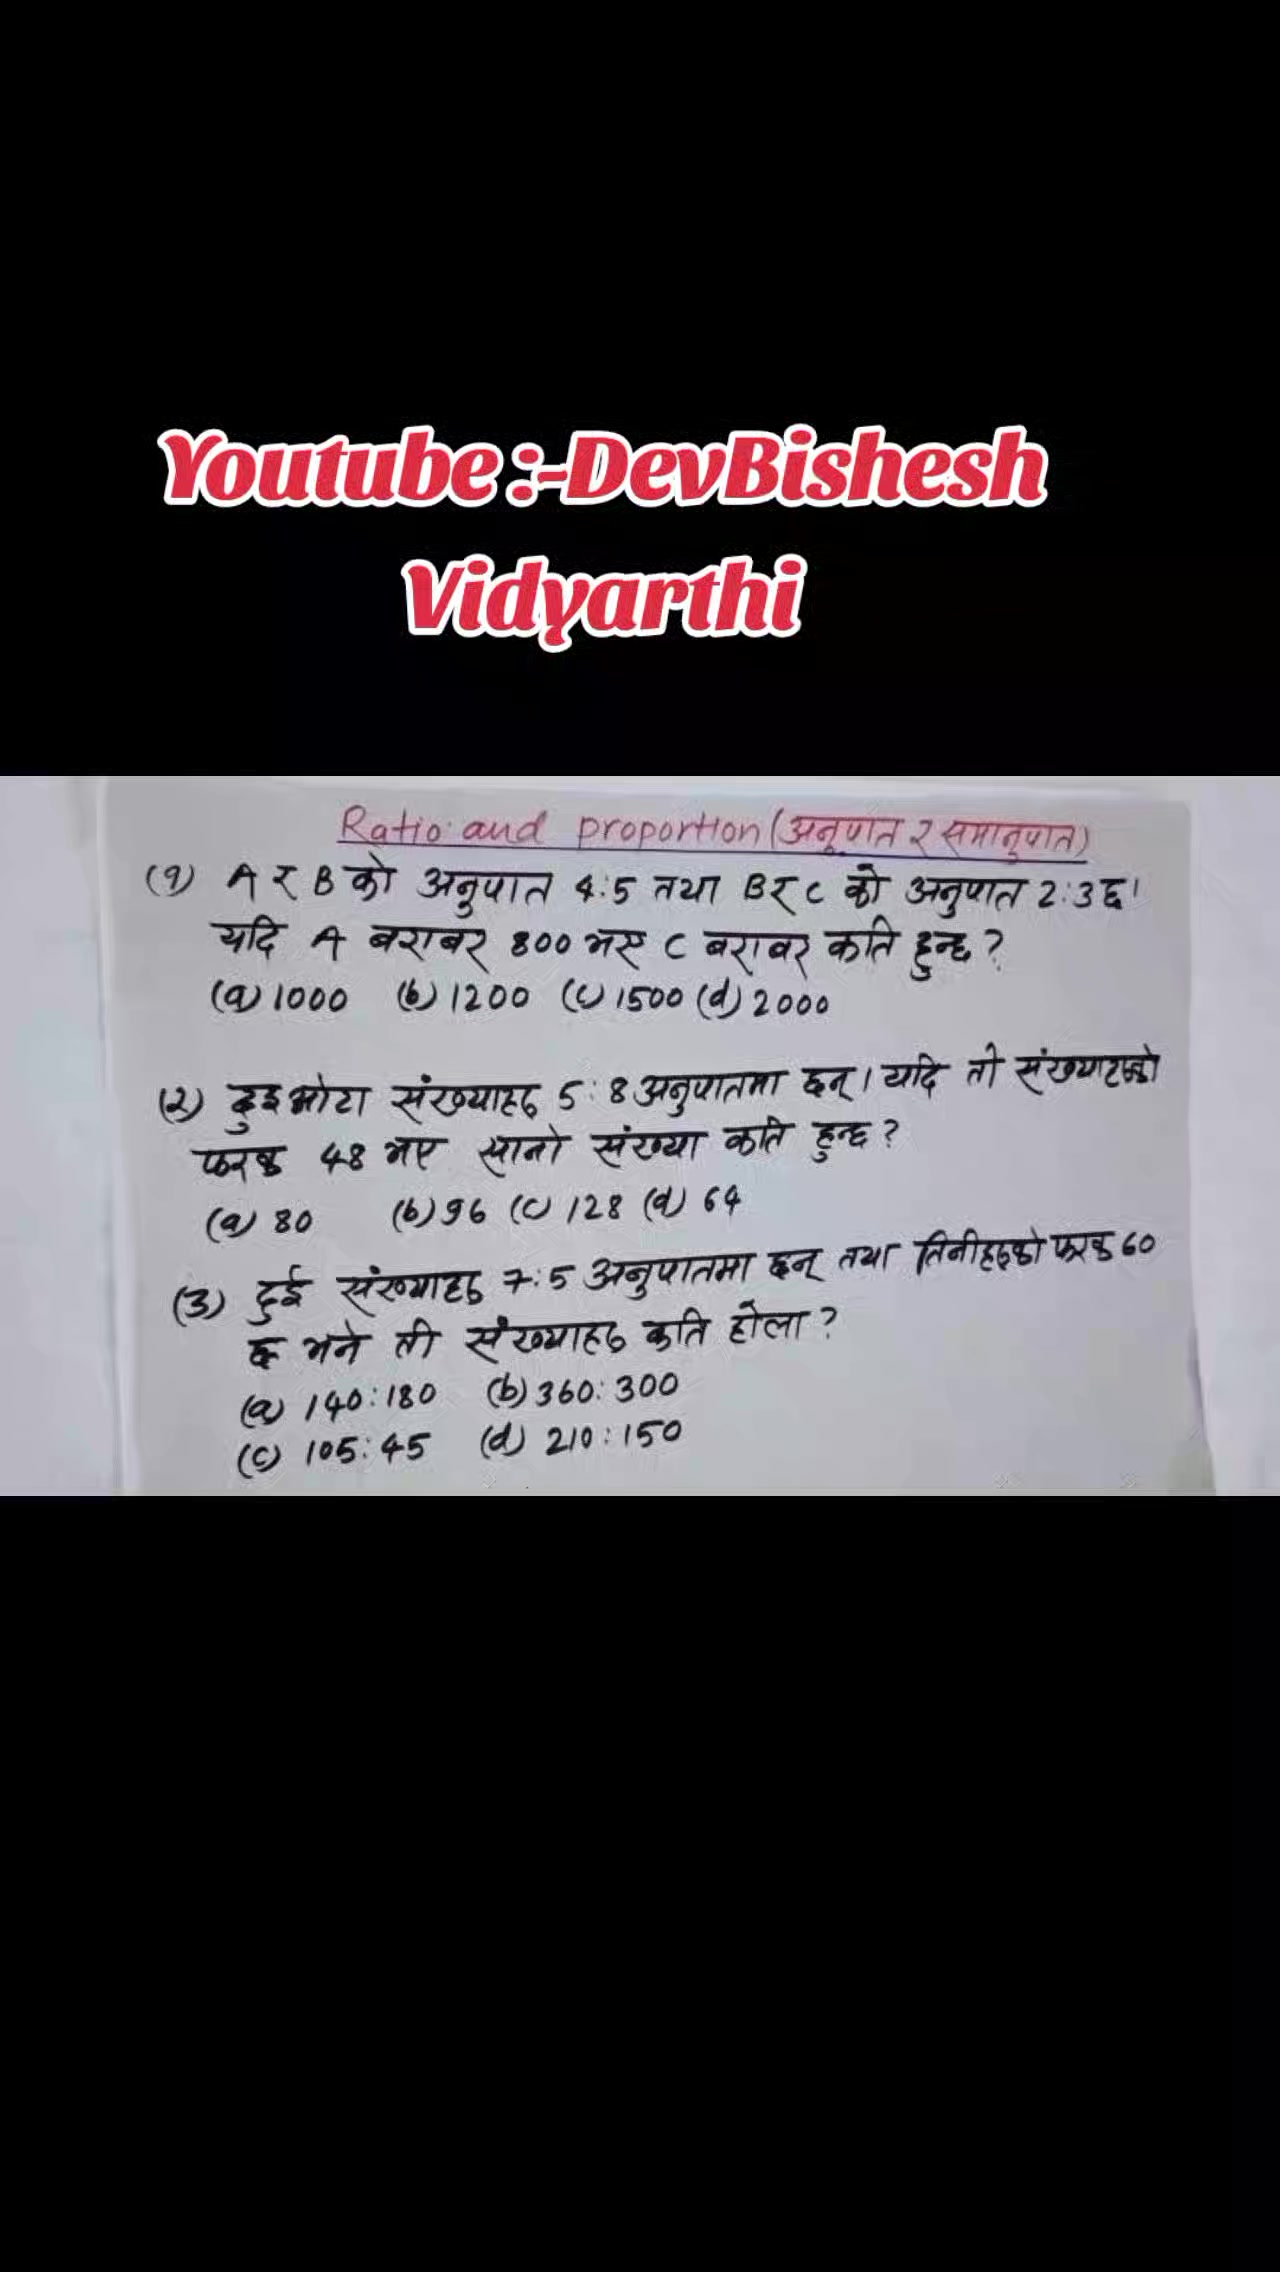 Youtube:-DevBishesh
Vidyarthi
Ratio and proportion (अनुपात र समानुपात)
(१) A र B को अनुपात 4:5 तथा B र C को अनुपात 2:3 छ।
यदि A बराबर 800 भए C बराबर कति हुन्छ?
(a) 1000 (b) 1200 (c) 1500 (d) 2000
(२) दुइओटा संख्याहरु 5:8 अनुपातमा छन्। यदि ती संख्याहरुको
फरक 48 भए सानो संख्या कति हुन्छ?
(a) 80 (b) 96 (c) 128 (d) 64
(3) दुई संख्याहरु 7:5 अनुपातमा छन् तथा तिनीहरुको फरक 60
छ भने ती संख्याहरु कति होला?
(a) 140:180 (b) 360:300
(c) 105:45 (d) 210:150